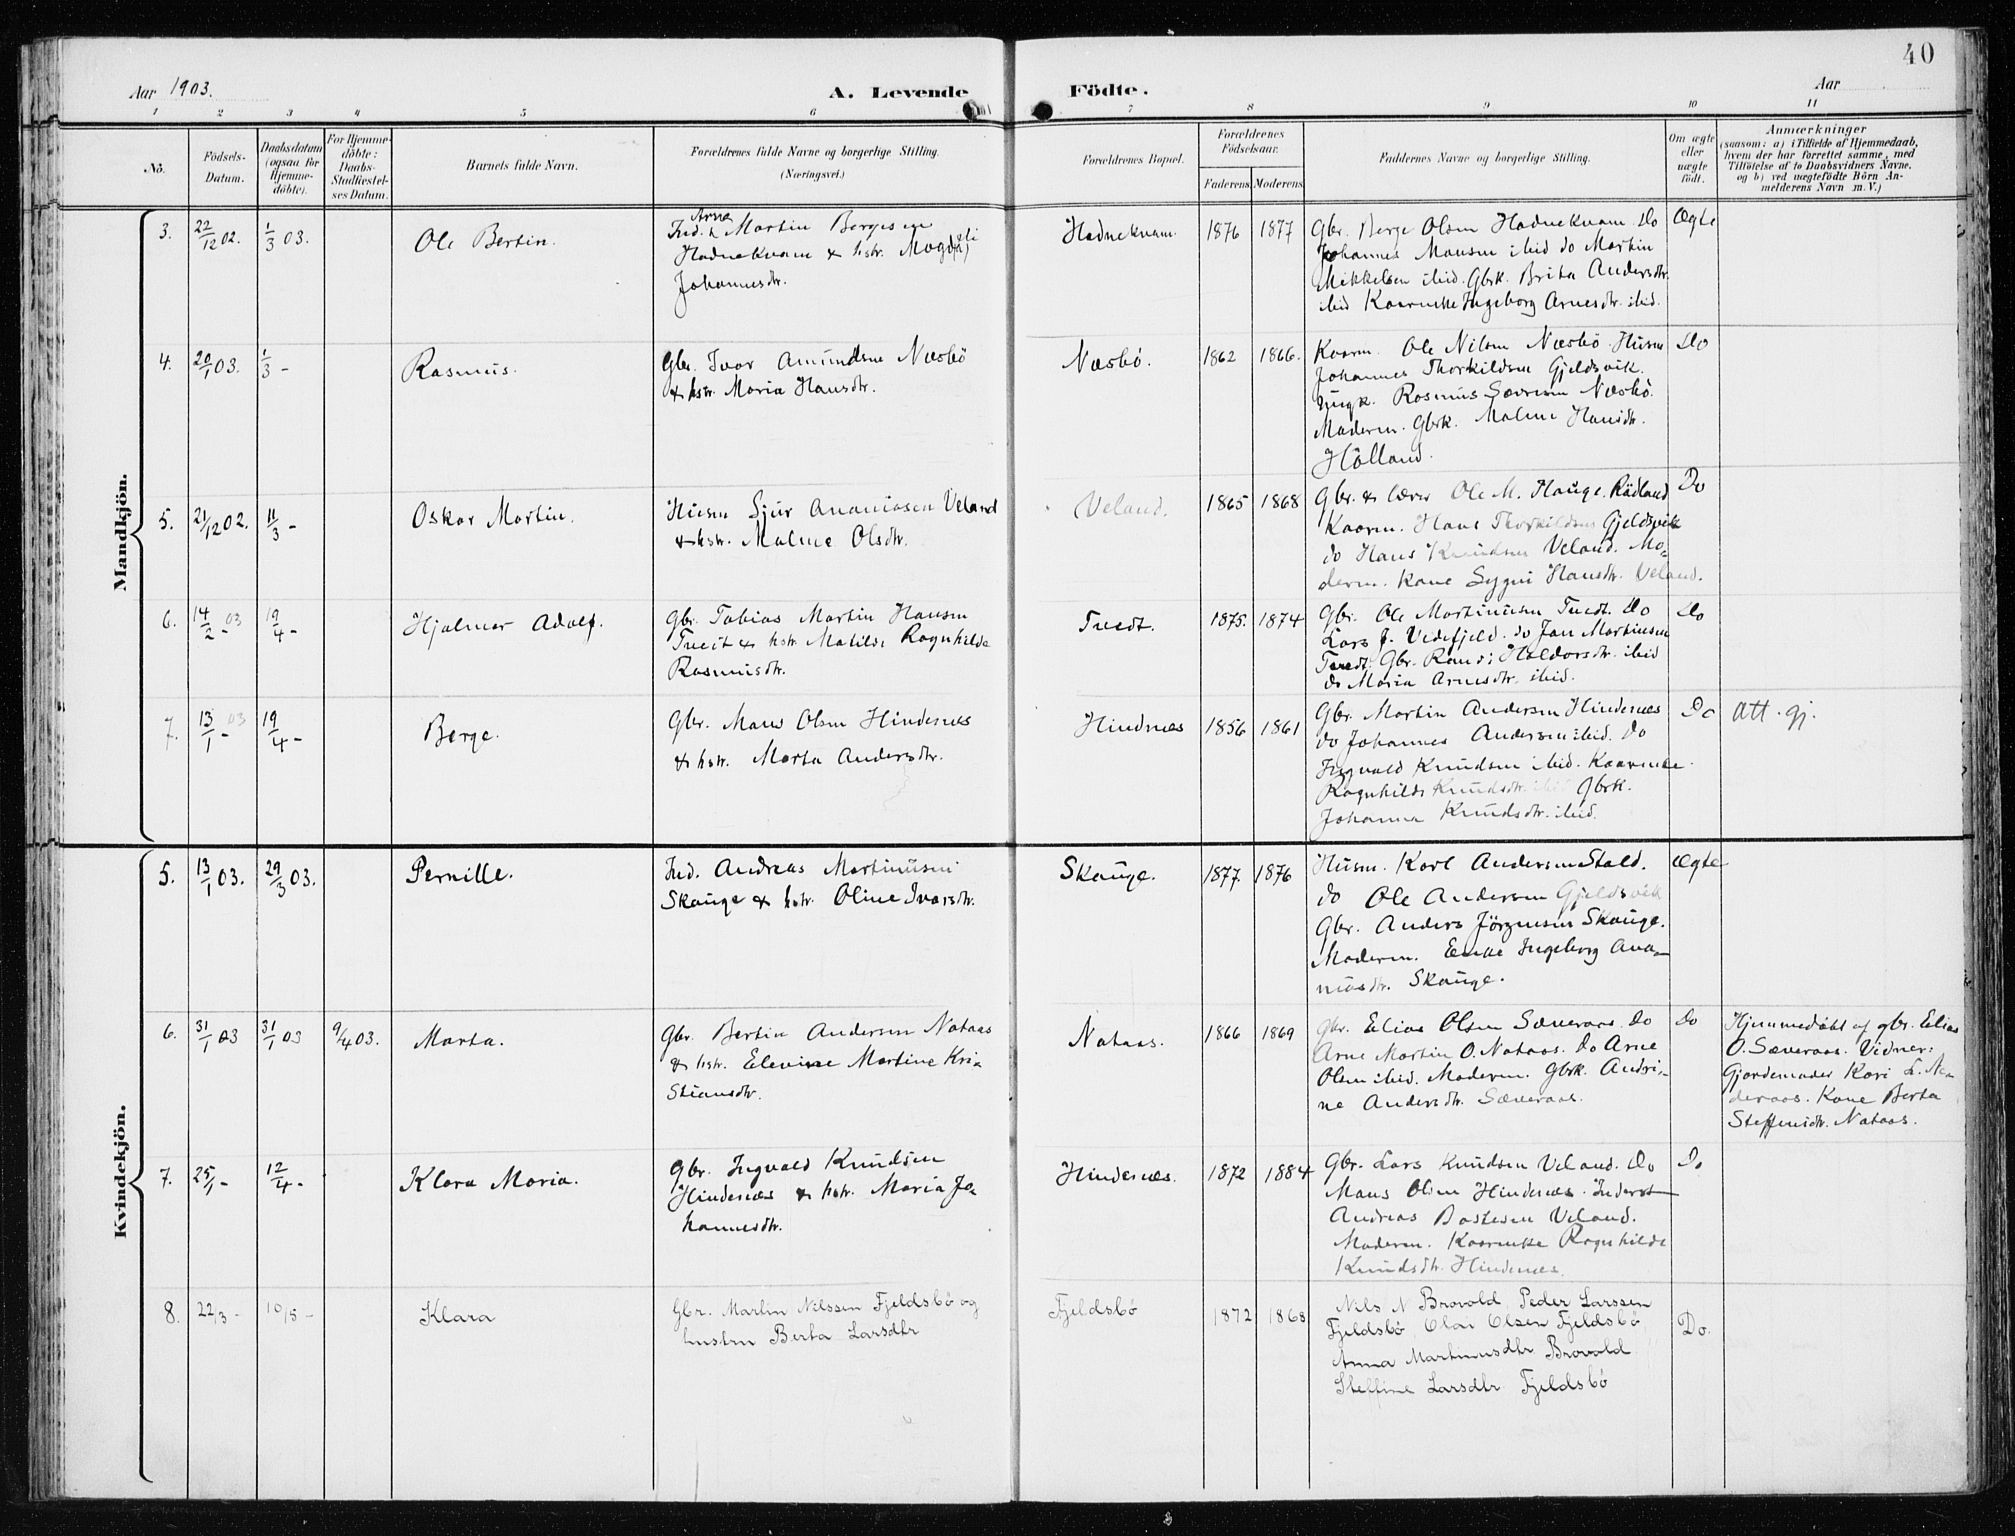 40
Aar 1903.
A. Levende
Födte.
Aar
1 2 3 4 5 6 7 8 9 10 11
No.
Födsels-Datum.
Daabsdatum (ogsaa for Hjemme-döbte).
For Hjemme-döbte: Daabs-Stadfæstel-ses Datum.
Barnets fulde Navn.
Forældrenes fulde Navne og borgerlige Stilling.
(Næringsvei.)
Forældrenes Bopæl.
Forældrenes Födselsaar.
Faderens. Moderens.
Faddernes Navne og borgerlige Stilling.
Om ægte eller uægte födt.
Anmærkninger
(saasom: a) i Tilfælde af Hjemmedaab,
hvem der har forrettet samme, med
Tilföielse af to Daabsvidners Navne.
og b) ved uægtefödte Börn An-
melderens Navn m. V.)
Mandkjön.
3. 22/12 02. 1/3 03. Ole Bertin.
Ind. Arne Martin Bergesen
Hodnekvam & hstr.
Johannesdtr.
Hodnekvam. 1876 1877
Gbr. Berge Olsen Hodnekvam. Do
Johannes Monsen ibid do Martin
Mikkelsen ibid. Gbrk. Brita Andersdtr.
ibid Kaarmke Ingeborg Arnesdtr. ibid.
Ægte
4. 20/1 03. 1/3 - Rasmus.
Gbr. Ivar Amundsen Næsbö
& hstr. Maria Hansdtr.
Næsbö. 1862 1866.
Kaarm. Ole Nilsen Næsbö. Husm
Johannes Thorkildsen Gjeldsvik.
Ungk. Rasmus Sævresen Næsbö.
Moderen. Gbrk. Maline Hansdtr.
Hölland.
Do
5. 21/12 02. 11/3 - Oskar Martin.
Husm Sjur Ananiasen Veland
& hstr. Maline Olsdtr.
Veland. 1865 1868
Gbr. & lærer Ole M. Hauge. Rödland
Kaarm. Hans Thorkildsen Gjeldsvik
do Hans Knudsen Veland. Mo-
deren. Kone Sygni Hansdtr. Veland.
Do
6. 14/2 - 03 19/4 - Hjalmar Adolf.
Gbr. Tobias Martin Hansen
Tveit & hstr. Matilde Ragnhilda
Rasmusdtr.
Tvedt. 1875. 1874
Gbr. Ole Martinusen Tvedt. Do
Lars J. Videfjeld. do Jan Martinsen
Tvedt. Gbr. Randi Haldorsdtr. ibid
do Maria Arnesdtr. ibid.
Do
7. 13/1 - 03 19/4 - Berge.
Gbr. Mons Olsen Hindenæs
& hstr. Marta Andersdtr.
Hindnæs 1856 1861
Gbr. Martin Andersen Hindenæs
do Johannes Andersen ibid. Do
Ingvald Knudsen ibid. Kaarmke
Ragnhilda Knudsdtr. ibid Gbrk.
Johanna Knudsdtr. ibid.
Do
Att. gj.
Kvindekjön.
5. 13/1 03. 29/3 03. Pernille.
Ind. Andreas Martinusen
Skauge & hstr. Oline Ivarsdtr.
Skauge. 1877. 1876
Husm. Karl Andersen Stald.
do Ole Andersen Gjeldsvik
Gbr. Anders Jörgensen Skauge.
Moderen. Enke Ingeborg Ana-
niasdtr. Skauge.
Ægte
6. 31/1 03 31/1 03 9/4 03. Marta.
Gbr. Bertin Andersen Nataas
& hstr. Elevine Martine Kri-
stiansdtr.
Nataas. 1866 1869
Gbr. Elias Olsen Sæveraas. Do
Arne Martin O. Nataas. Do Arne
Olsen ibid. Moderen. Gbrk. Andri-
ne Andersdtr. Sæveraas.
Do
Hjemmedöbt af gbr. Elias
O. Sæveraas. Vidner:
Gjordemoder Kari L. Ne-
deraas. Kone Berta
Steffensdtr. Nataas.
7. 25/1 - 12/4 - Klara Maria.
Gbr. Ingvald Knudsen
Hindenæs & hstr. Maria Jo-
hannesdtr.
Hindenæs. 1872 1884
Gbr. Lars Knudsen Veland. Do
Mons Olsen Hindenæs. Inderst
Andreas Bastesen Veland.
Moderen. Kaarmke Ragnhilda
Knudsdtr. Hindenæs.
Do
8. 22/3 - 10/5 - Klara
Gbr. Martin Nilssen Fjeldsbö og
hustru Berta Larsdtr
Fjeldsbö 1872 1868
Nils N Brovold, Peder Larssen
Fjeldsbö, Olai Olsen Fjeldsbö,
Anna Martinusdtr Brovold
Steffine Larsdtr Fjeldsbö
Do.